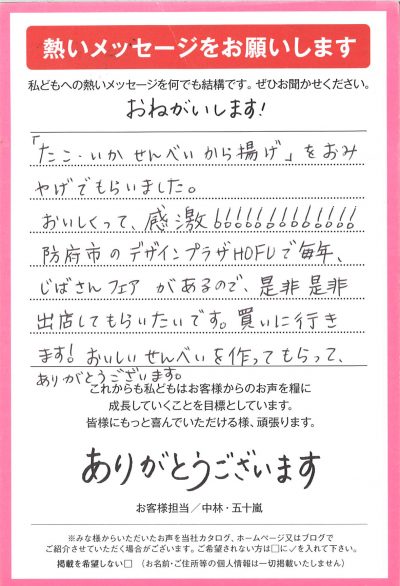 熱いメッセージをお願いします
私どもへの熱いメッセージを何でも結構です。ぜひお聞かせください。
おねがいします!
「たこ・いか せんべい から揚げ」をおみ
やげでもらいました。
おいしくって、感激!!!!!!!!!!!!!
防府市のデザインプラザHOFUで毎年、
じばさんフェア があるので、是非 是非
出店してもらいたいです。買いに行き
ます! おいしいせんべいを作ってもらって、
ありがとうございます。
これからも私どもはお客様からのお声を糧に
成長していくことを目標としています。
皆様にもっと喜んでいただける様、頑張ります。
ありがとうございます
お客様担当/中林・五十嵐
※みな様からいただいたお声を当社カタログ、ホームページ又はブログで
ご紹介させていただく場合がございます。ご希望されない方は□に✓を入れて下さい。
掲載を希望しない□ (お名前・ご住所等の個人情報は一切掲載いたしません)